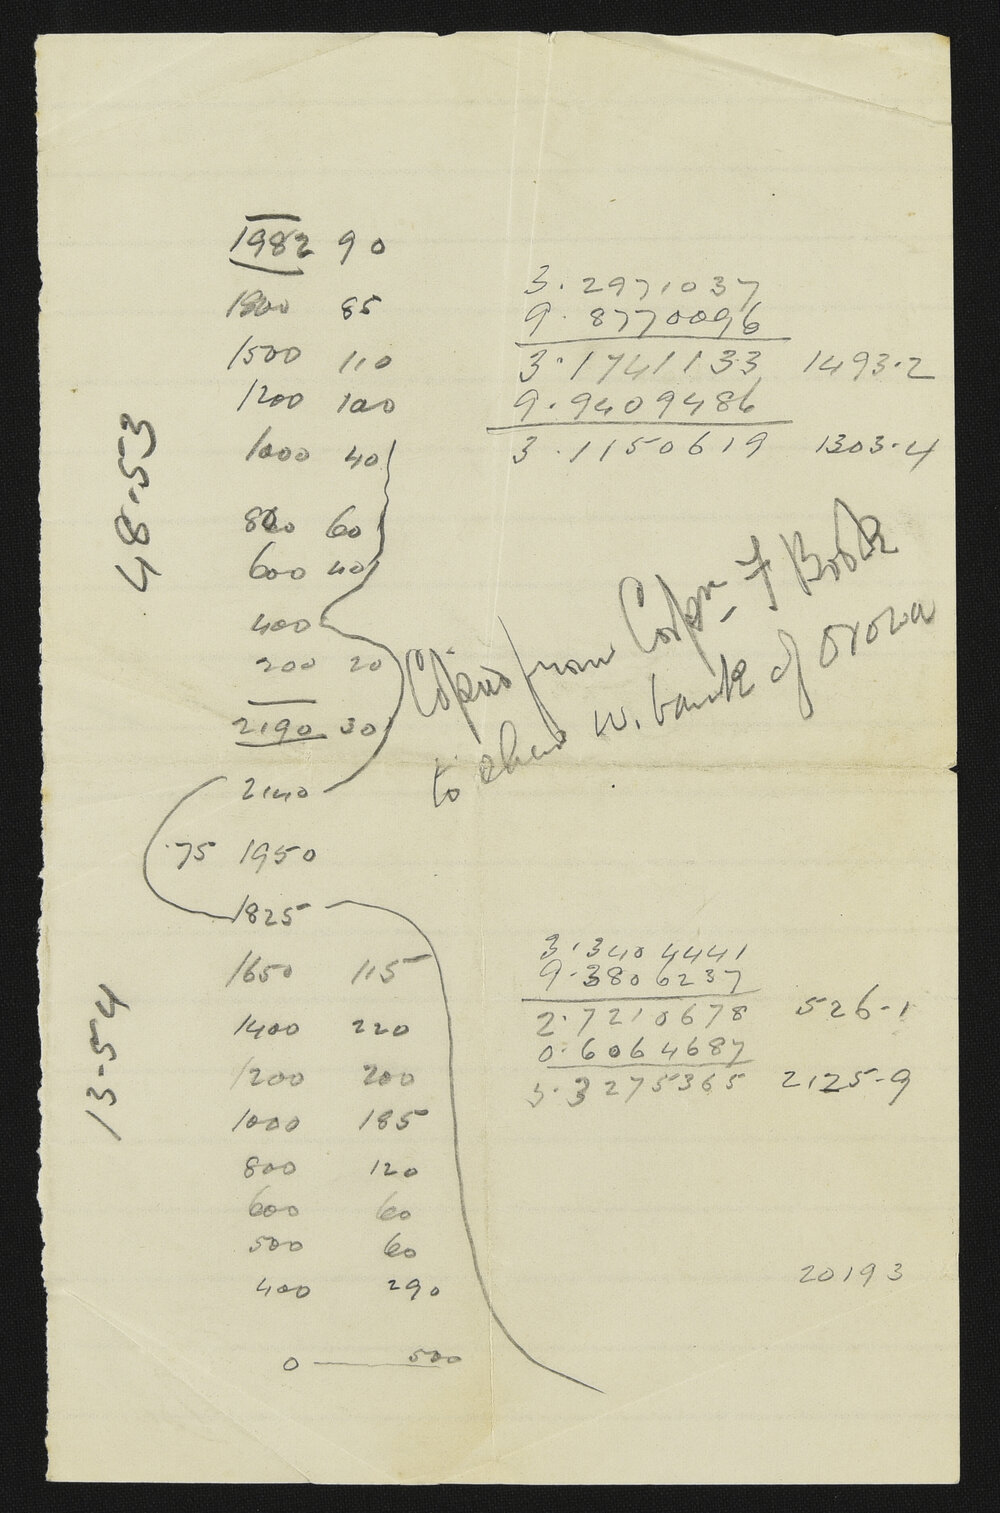 1982 90
1800 85
1500 110
1200 100
1000 40
800 60
600 40
400
200 20
2190 30
2140
75 1950
1825
1650 115
1400 220
1200 200
1000 185
800 120
600 60
500 60
400 290
0 — 500
48-53
13-54
3.2971037
9.8770096
3.1741133 1493.2
9.9409486
3.1150619 1303-4
Copied from Corpn F Book
to shew w. bank of orowa
3.3404441
9.3806237
2.7210678 526-1
0.6064687
3.3275365 2125-9
20193